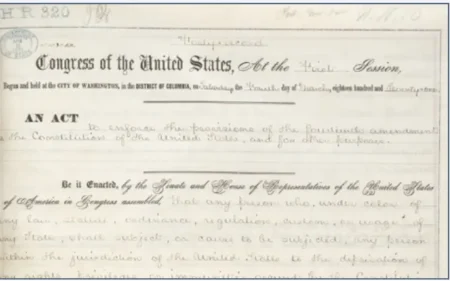 H R 320
Forty-second
Congress of the United States, At the First Session,
Begun and held at the CITY OF WASHINGTON, in the DISTRICT OF COLUMBIA, on Saturday, the Fourth day of March, eighteen hundred and Seventy-one.
AN ACT
to enforce the provisions of the fourteenth amendment
to the Constitution of the United States, and for other purposes.
Be it Enacted, by the Senate and House of Representatives of the United States
of America in Congress assembled, That any person who, under color of
any law, statute, ordinance, regulation, custom, or usage of
any State, shall subject, or cause to be subjected, any person
within the jurisdiction of the United States to the deprivation of
any rights, privileges, or immunities secured by the Constitution